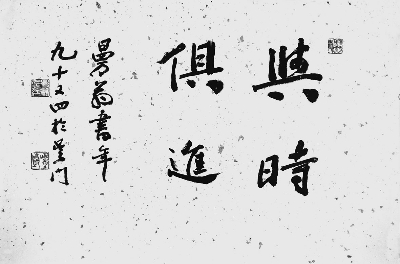 與時
俱進
曼翁書年
九十又四於吴门